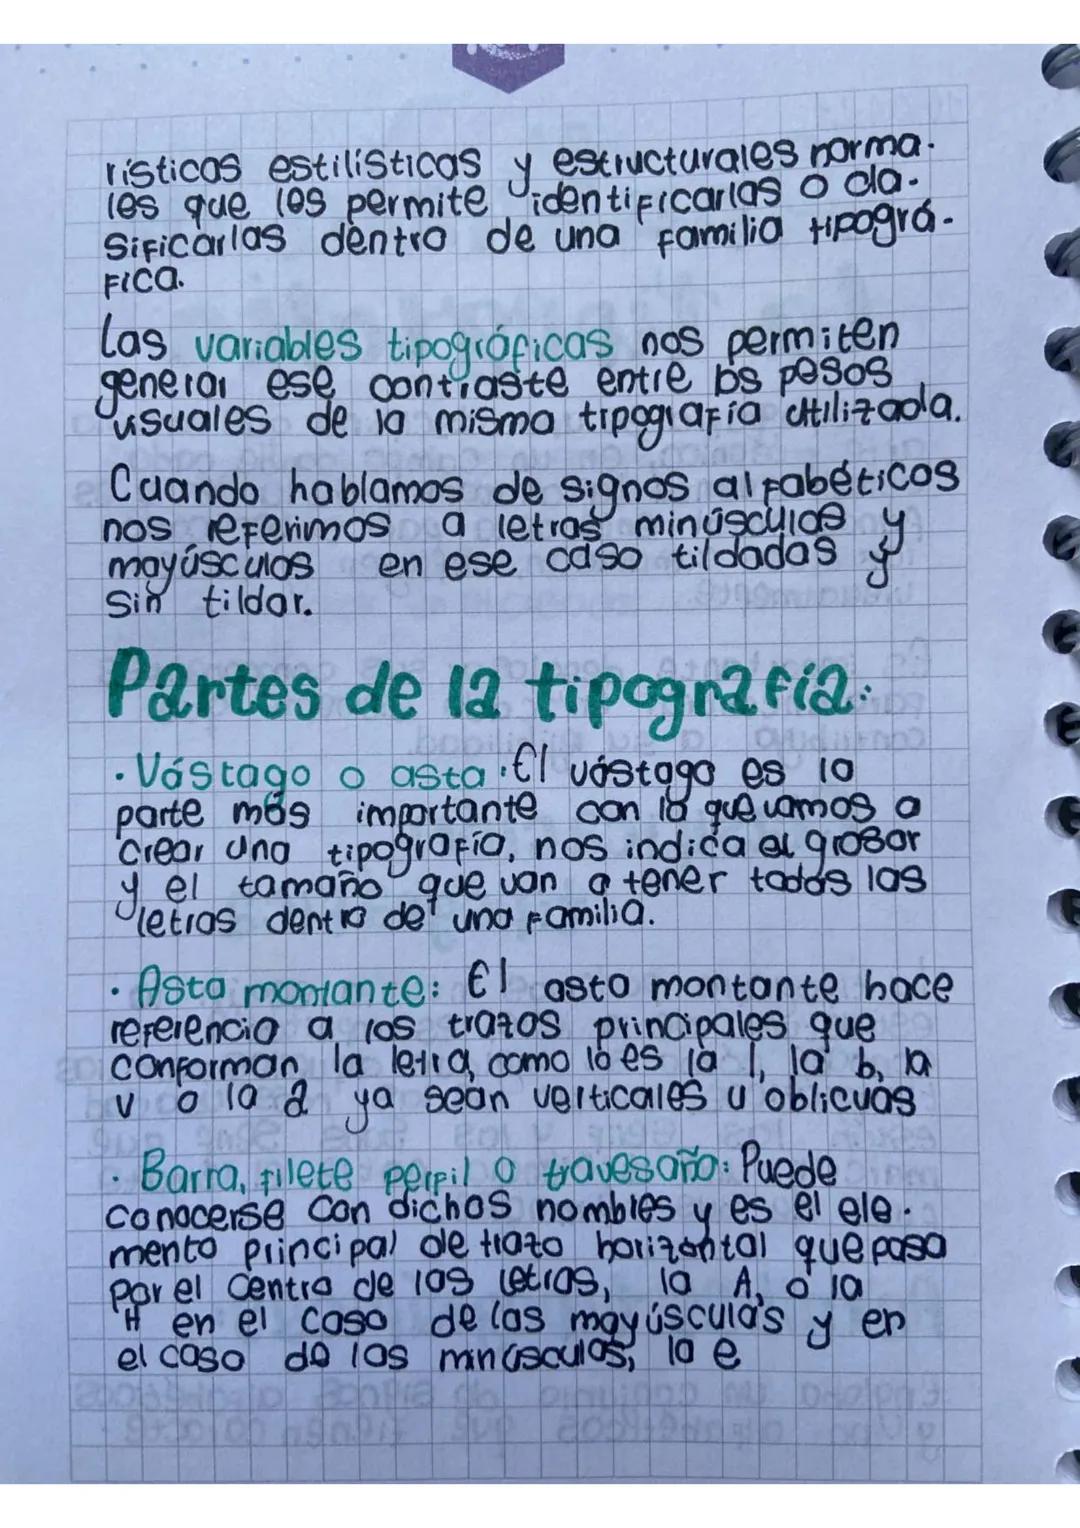 rísticas estilísticas y estructurales norma-
les que les permite identificarlas o cla-
sificarlas dentro de una familia tipográ-
fica.
Las variables tipográficas nos permiten
generar ese contraste entre los pesos
visuales de la misma tipografía utilizada.
Cuando hablamos de signos alfabéticos
nos referimos a letras minúsculas y
mayúsculas en ese caso tildadas y
sin tildar.
Partes de la tipografía:
· Vástago o asta: El vástago es la
parte más importante con la que vamos a
crear una tipografía, nos indica el grosor
y el tamaño que van a tener todas las
letras dentro de una familia.
· Asta montante: El asta montante hace
referencia a los trazos principales que
conforman la letra, como lo es la l, la b, la
v o la a ya sean verticales u oblicuas
· Barra, filete perfil o travesaño: Puede
conocerse con dichos nombres y es el ele-
mento principal de trazo horizontal que pasa
por el centro de las letras, la A, o la
H en el caso de las mayúsculas y en
el caso de las minúsculas, la e